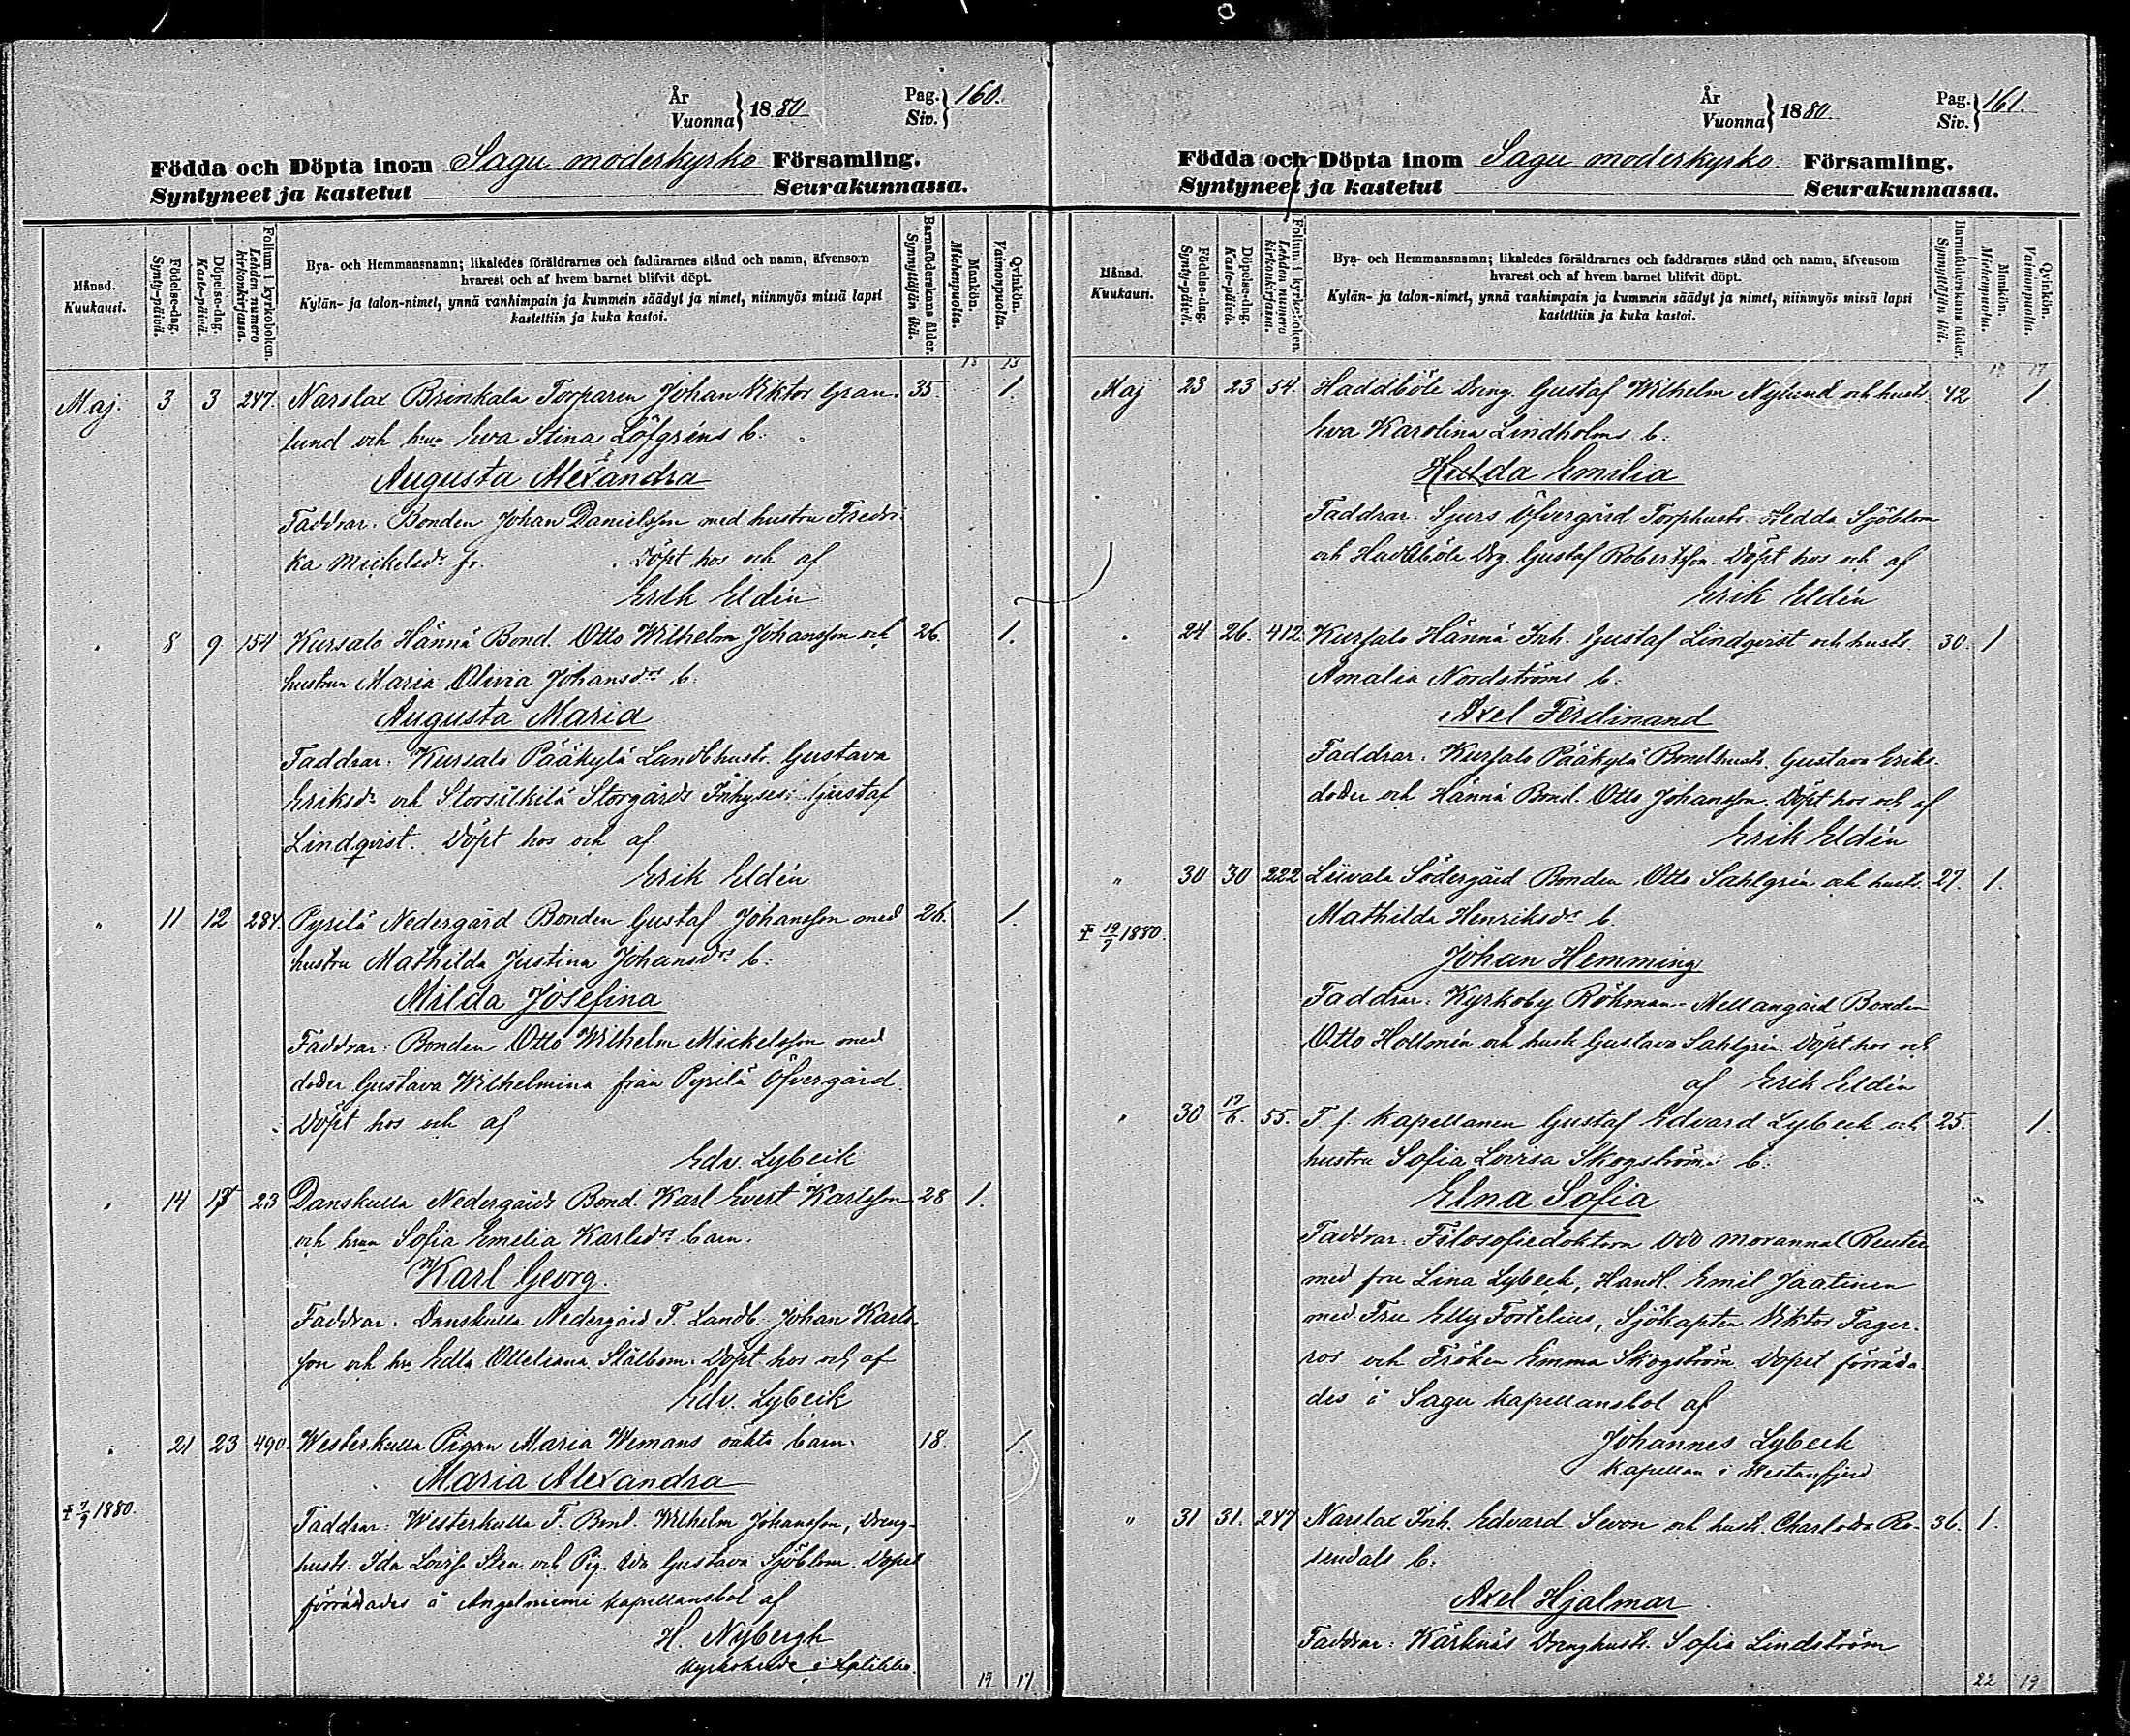 År
Vuonna } 1880
Pag.
Siv. } 160.
Födda och Döpta inom Sagu moderkyrko Församling.
Syntyneet ja kastetut Seurakunnassa.
Månad.
Kuukausi.
Födelse-dag.
Synty-päivä.
Döpelse-dag.
Kaste-päivä.
Folium i kyrkoboken.
Lehden numero kirkonkirjassa.
Bya- och Hemmansnamn; likaledes föräldrarnes och faddrarnes stånd och namn, äfvensom
hvarest och af hvem barnet blifvit döpt.
Kylän- ja talon-nimet, ynnä vanhimpain ja kummein säädyt ja nimet, niinmyös missä lapsi
kastettiin ja kuka kastoi.
Barnaföderskans ålder.
Synnyttäjän ikä.
Mankön.
Miehenpuolta.
Qvinkön.
Vaimonpuolta.
13 15
Maj. 3 3 247. Narslax Brinkala Torparen Johan Viktor Gran- 35. 1.
lund och hun Eva Stina Löfgréns b.
Augusta Alexandra
Faddrar. Bonden Johan Danielsson med hustru Fredri-
ka Mickelsdr fr. Döpt hos och af
Erik Eldén
" 8 9 154 Kursalo Hännä Bond. Otto Wilhelm Johansson och 26. 1.
hustrun Maria Olivia Johansdrs b.
Augusta Maria
Faddrar: Kursalo Pääkylä Landbhustr. Gustava
Eriksdr och Storsilkilä Storgårds Inhyses: Gustaf
Lindqvist. Döpt hos och af
Erik Eldén
" 11 12 284. Pyrilä Nedergård Bonden Gustaf Johansson med 26. 1.
hustru Mathilda Justina Johansdrs b:
Milda Josefina
Faddrar: Bonden Otto Wilhelm Mickelsson med
doder Gustava Wilhelmina från Pyrilä Öfvergård
Döpt hos och af
Edv. Lybeck
" 14 17 23 Danskulla Nedergårds Bond. Karl Evert Karlsson 28 1.
och hrun Sofia Emelia Karlsdrs barn.
Karl Georg.
Faddrar. Danskulla Nedergård F. Landb. Johan Karls-
son och hu Edla Ottiliana Stålbom. Döpt hos och af
Edv. Lybeck
" 21 23 490. Westerkulla Pigan Maria Wemans oäkta barn. 18. 1
Maria Alexandra
‡ 7/9 1880.
Faddrar: Westerkulla F. Bond. Wilhelm Johansson, Dreng-
hustr. Ida Lovisa Sten och Pig. Ida Gustava Sjöblom. Dopet
förrättades å Angelniemi kapellansbol af
H. Nybergh
Kyrkoherde i
19 17
År
Vuonna } 1880.
Pag.
Siv. } 161.
Födda och Döpta inom Sagu moderkyrko. Församling.
Syntyneet ja kastetut Seurakunnassa.
Månad.
Kuukausi.
Födelse-dag.
Synty-päivä.
Döpelse-dag.
Kaste-päivä.
Folium i kyrkoboken.
Lehden numero kirkonkirjassa.
Bya- och Hemmansnamn; likaledes föräldrarnes och faddrarnes stånd och namn, äfvensom
hvarest och af hvem barnet blifvit döpt.
Kylän- ja talon-nimet, ynnä vanhimpain ja kummein säädyt ja nimet, niinmyös missä lapsi
kastettiin ja kuka kastoi.
Barnaföderskans ålder.
Synnyttäjän ikä.
Mankön.
Miehenpuolta.
Qvinkön.
Vaimonpuolta.
19 17
Maj 23 23 54. Haddböle Dreng. Gustaf Wilhelm Nylund och hustr. 42 1.
Eva Karolina Lindholms b.
Hulda Emilia
Faddrar. Sjurs Öfvergård Torphustr. Hedda Sjöblom
och Haddböle Drg. Gustaf Robertsson. Döpt hos och af
Erik Eldén
" 24 26. 412. Kursalo Hännä Inh. Gustaf Lindqvist och hustr. 30. 1
Amalia Nordströms b.
Axel Ferdinand
Faddrar. Kursalo Pääkylä Bondhustr. Gustava Eriks-
doder och Hännä Bond. Otto Johansson. Döpt hos och af
Erik Eldén
" 30 30 222 Leivala Södergård Bonden Otto Sahlgrén och hustr. 27. 1.
Mathilda Henriksdrs b.
‡ 19/7 1880.
Johan Hemming
Faddrar: Kyrkoby Röhman-Mellangård Bonden
Otto Hollmén och hustr Gustava Sahlgrén. Döpt hos och
af Erik Eldén
" 30 17/6. 55. T. f. Kapellanen Gustaf Edvard Lybeck och 25. 1.
hustru Sofia Lovisa Skogströms b.
Elna Sofia
Faddrar: Filosofiedoktorn Odo Morannal Reuter
med fru Lina Lybeck, Handl. Emil Jaatinen
med Fru Elly Fortelius, Sjökapten Viktor Fager-
ros och Fröken Emma Skogström. Dopet förrätta-
des i Sagu kapellansbol af
Johannes Lybeck
Kapellan i Westanfjerd
" 31 31. 247 Narslax Inh. Edvard Sevon och hustr. Charlotta Ro- 36. 1.
sendals b.
Axel Hjalmar
Faddrar: Kärknäs Drenghustr. Sofia Lindström
22 19